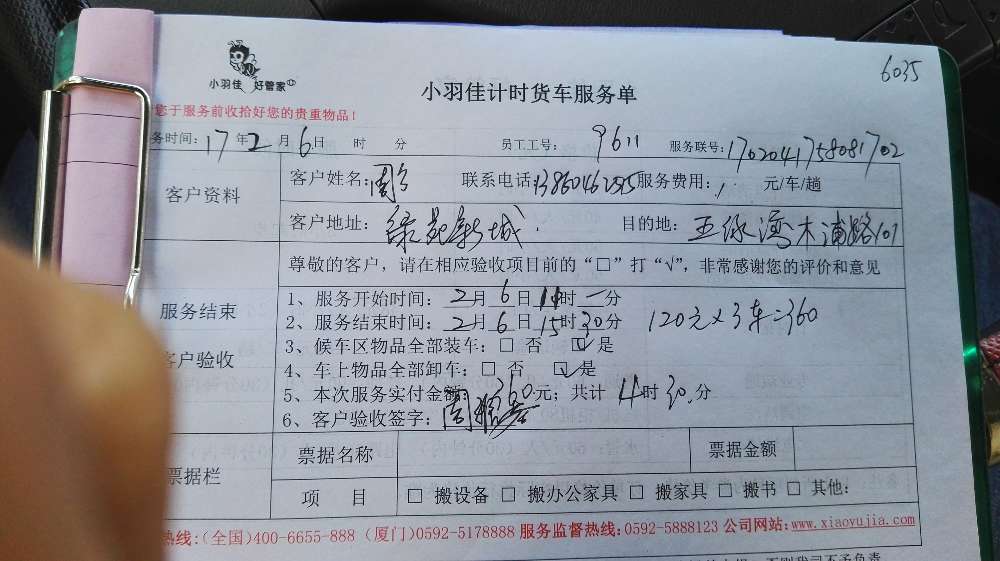 6035
小羽佳 好管家
小羽佳计时货车服务单
您于服务前收拾好您的贵重物品！
务时间：17年2月6日 时 分 员工工号： 9611 服务联号：1702041758081702
客户资料
客户姓名：周 联系电话： 服务费用： 元/车/趟
客户地址：绿苑新城 目的地： 五缘湾木浦路101
尊敬的客户，请在相应验收项目前的“□”打“√”，非常感谢您的评价和意见
服务结束
客户验收
1、服务开始时间：2月6日11时一分
2、服务结束时间：2月6日15时30分 120元×3车=360
3、候车区物品全部装车：□ 否 ☑ 是
4、车上物品全部卸车：□ 否 ☑ 是
5、本次服务实付金额：360元；共计 4时30分
6、客户验收签字：周
票据栏
票据名称 票据金额
项 目 □ 搬设备 □ 搬办公家具 □ 搬家具 □ 搬书 □ 其他：
热线：(全国)400-6655-888 (厦门)0592-5178888 服务监督热线：0592-5888123 公司网站：www.xiaoyujia.com